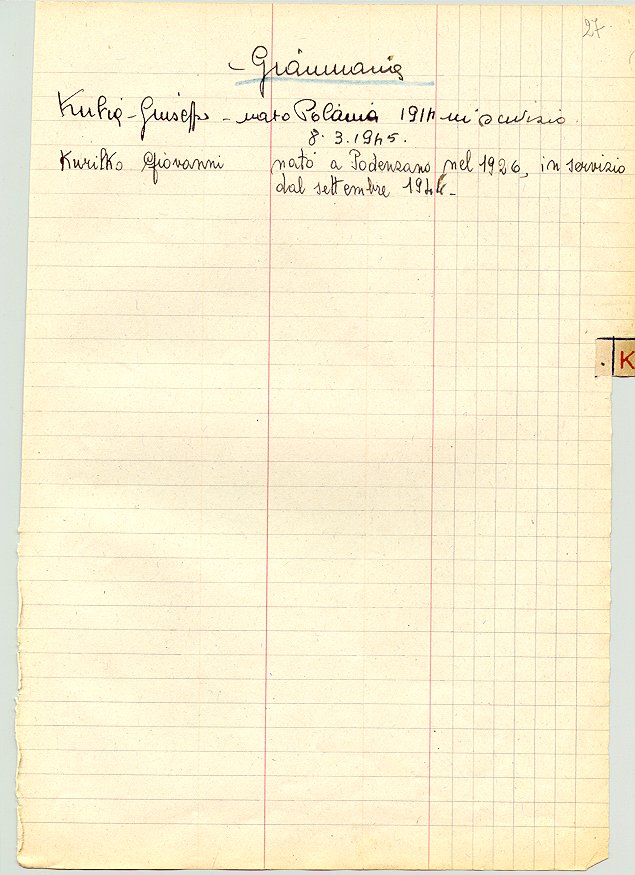 27.
- Grammania
Kubia - Giuseppe - nato Polania 1914 in servizio
8.3.1945.
Kurilko Giovanni nato a Podenzano nel 1926, in servizio
dal settembre 1944 -
K